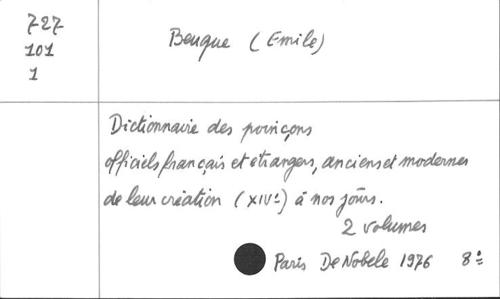 727
101
1
Beuque (Emile)
Dictionnaire des poinçons
officiels français et étrangers, anciens et modernes
de leur création (XIVe) à nos jours.
2 volumes
Paris De Nobele 1976 8°